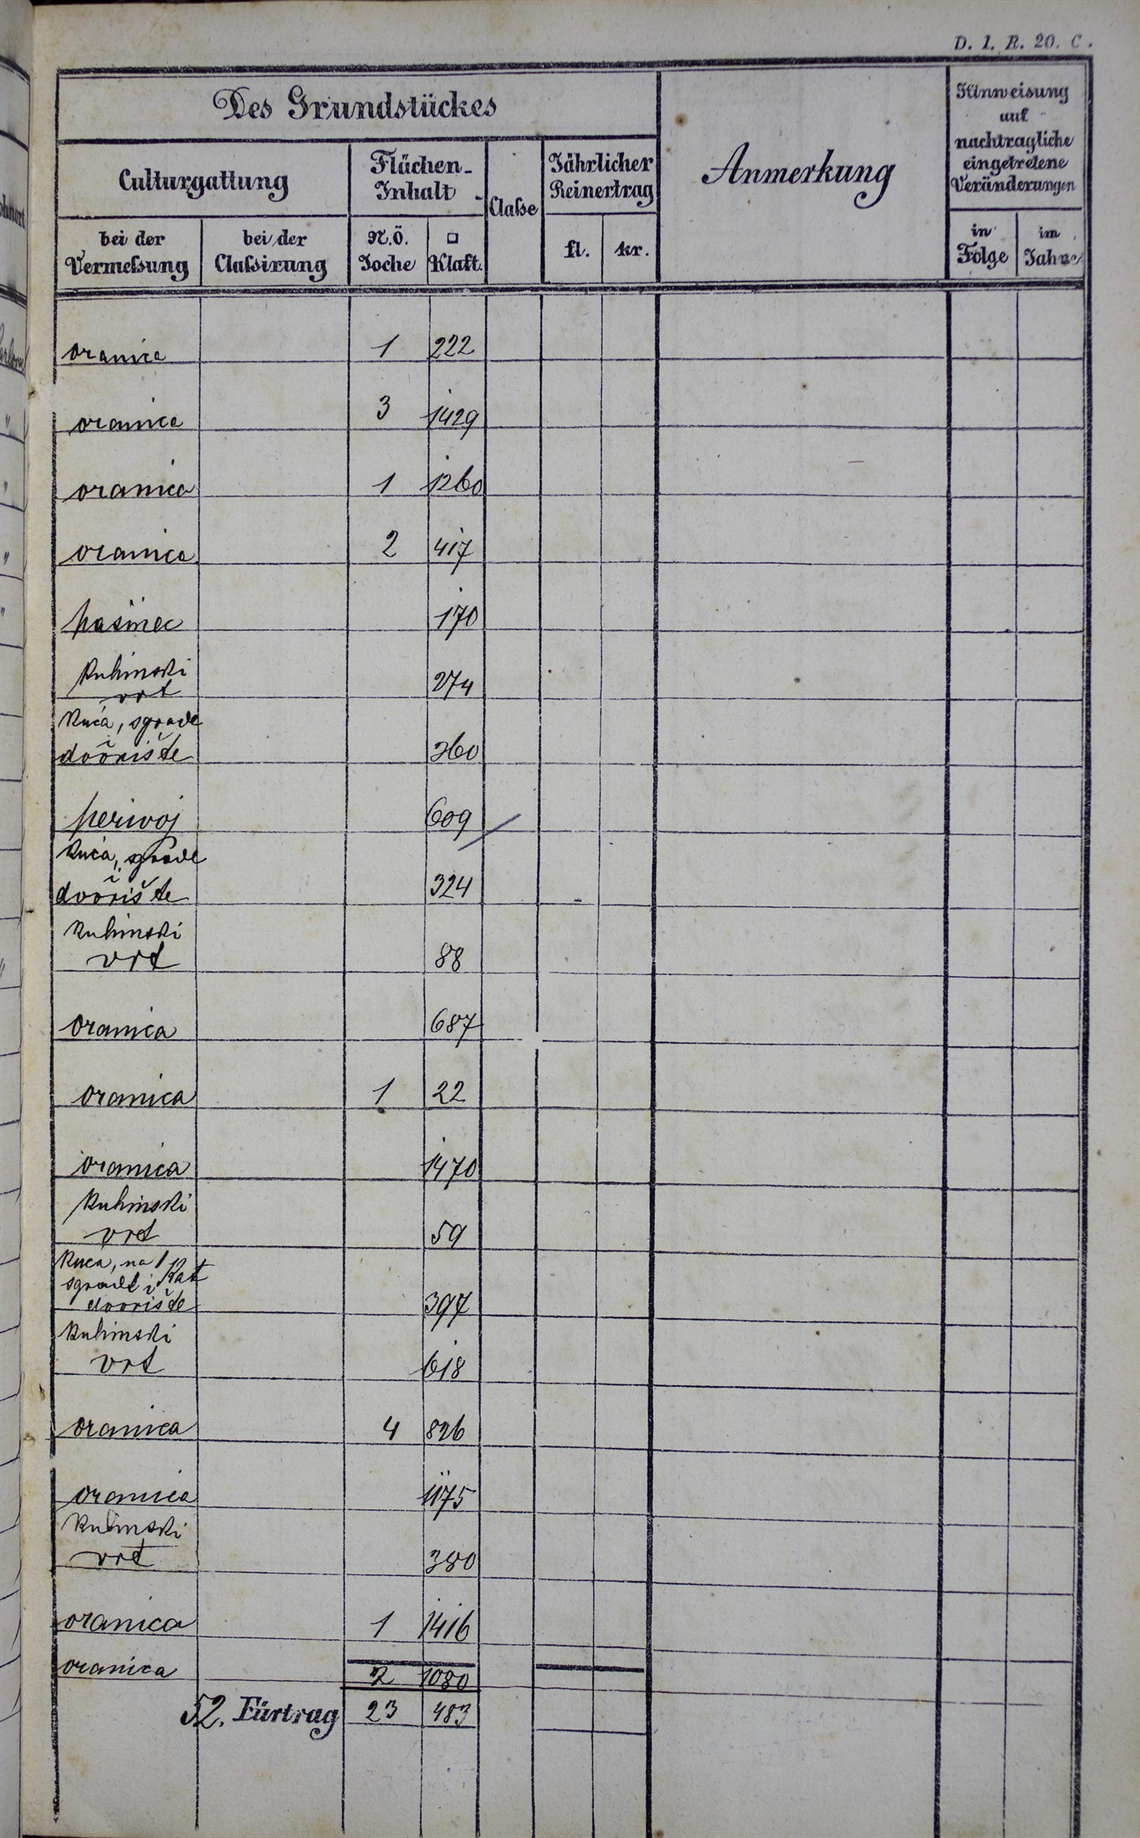 D. 1. R. 20. C.
Des Grundstückes
Culturgattung
Flächen-
Inhalt
Claße
Jährlicher
Reinertrag
Anmerkung
Hinweisung
auf
nachtragliche
eingetretene
Veränderungen
bei der
Vermeßung
bei der
Claßirung
N.Ö.
Joche
□
Klaft.
fl.
kr.
in
Folge
im
Jahre
oranica 1 222
oranica 3 1429
oranica 1 1260
oranica 2 417
pašnec 170
Kuhinski
vrt 274
Kuća, sgrade
i
dvorište 360
perivoj 609
Kuća, sgrade
i
dvorište 324
Kuhinski
vrt 88
oranica 687
oranica 1 22
oranica 1470
Kuhinski
vrt 59
Kuća, na 1 Kat
sgrade i
dvorište 397
Kuhinski
vrt 618
oranica 4 826
oranica 1175
Kuhinski
vrt 380
oranica 1 1416
oranica 2 1080
52. Fürtrag 23 483